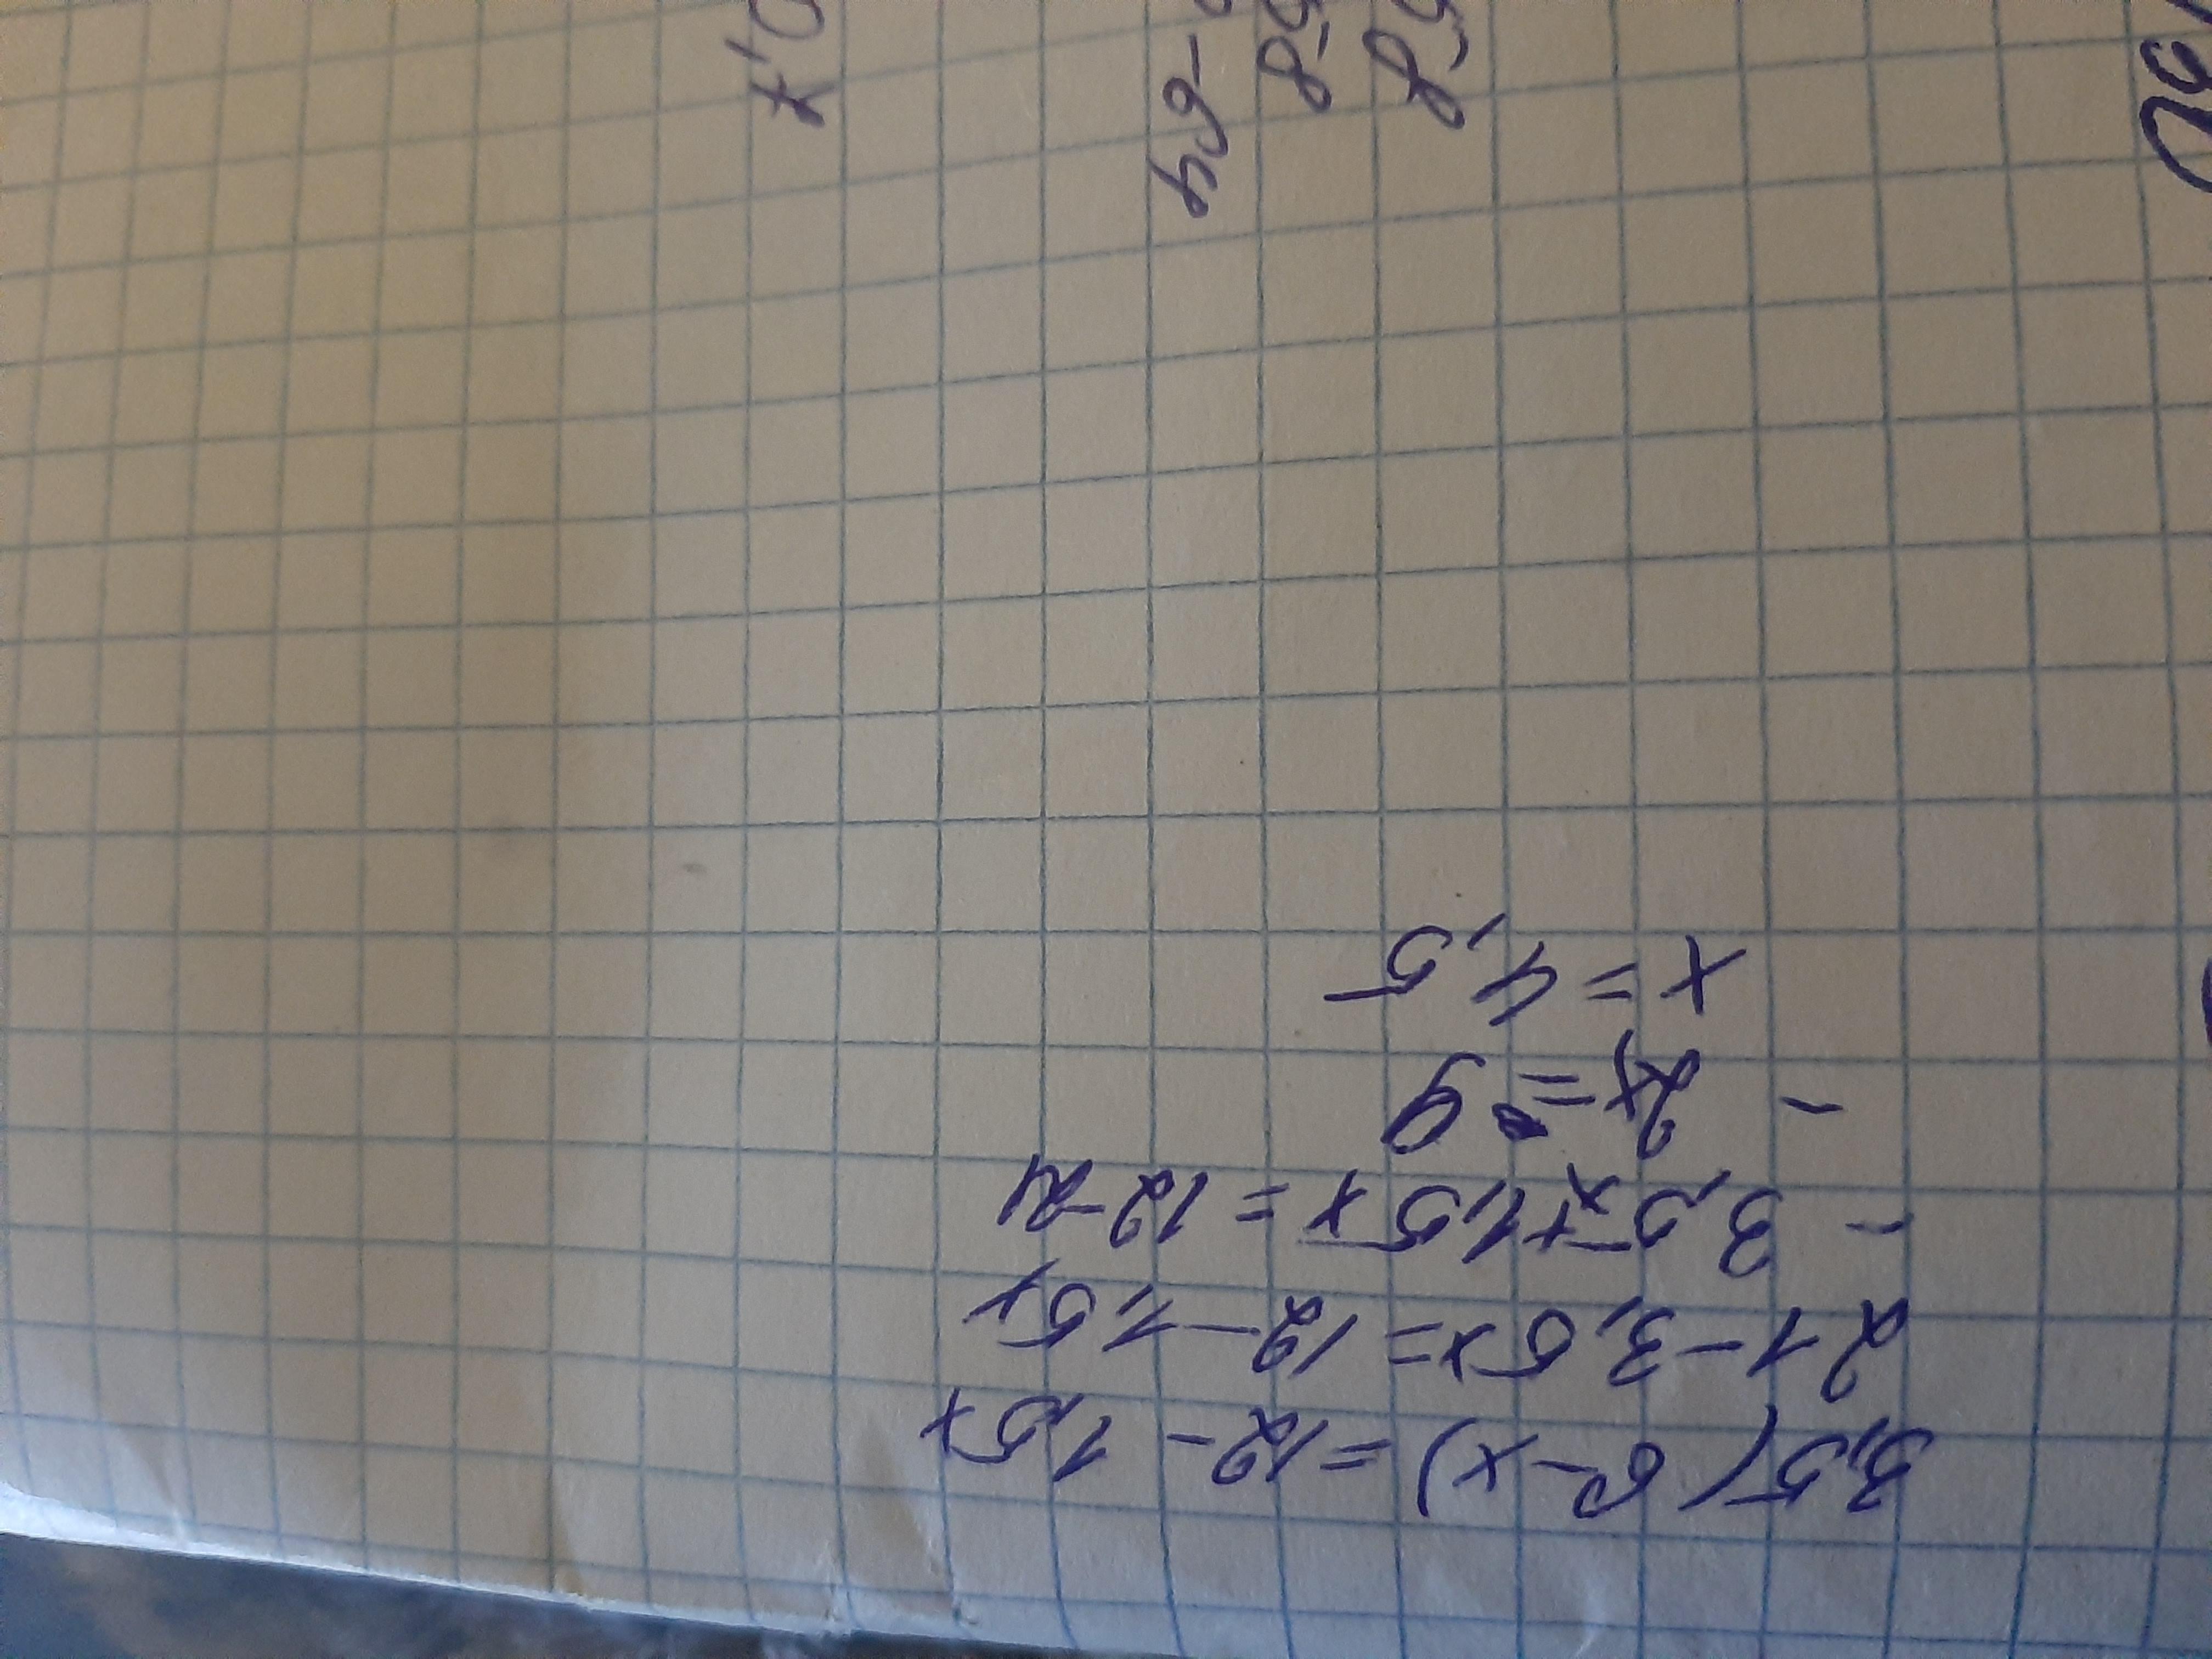 3,5(6-x)=12-1,5x
21-3,5x=12-1,5x
-3,5x+1,5x=12-21
- 2x = 9
x = 4,5